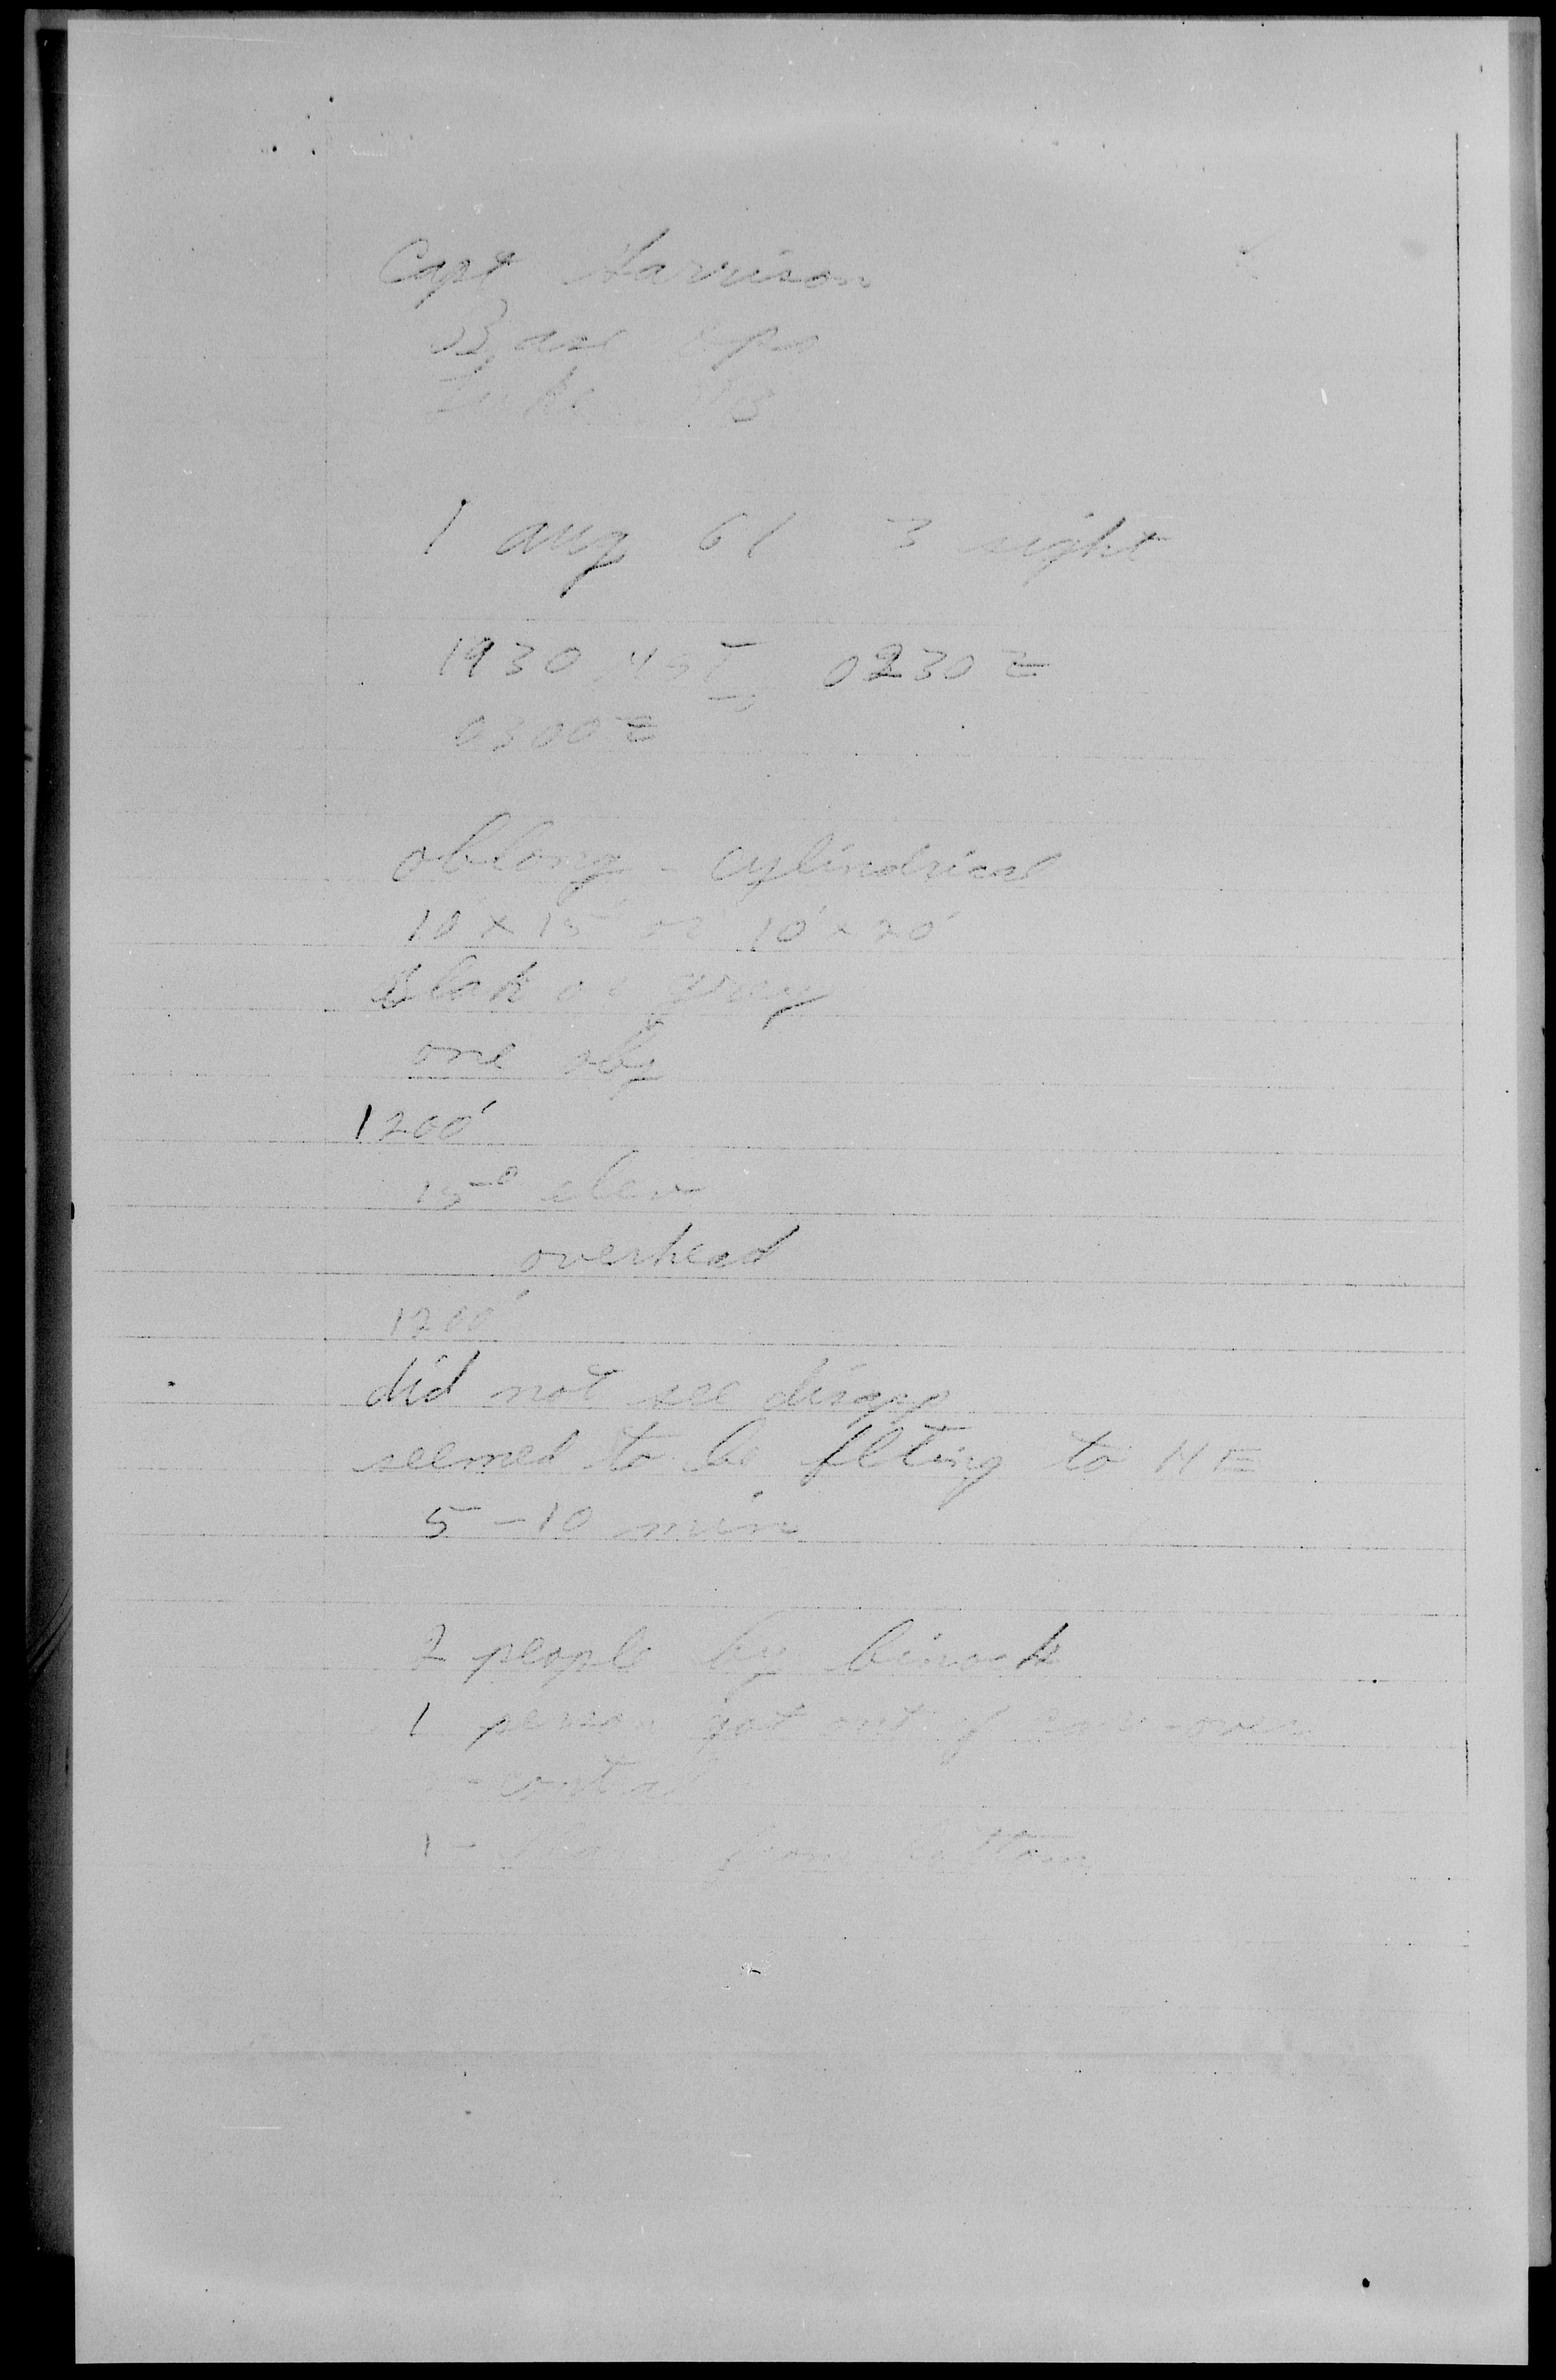 Capt Harrison
Base Ops
Luke AFB
1 aug 61 3 sight
1930 MST 0230 Z
0300 Z
oblong - cylindrical
10' x 15' or 10' x 20'
Blak or gray
one obj
1200'
15° elev
overhead
1200'
did not see disapp
seemed to be flting to NE
5 - 10 min
2 people by binock
1 person got out of car - over
1 - from bottom